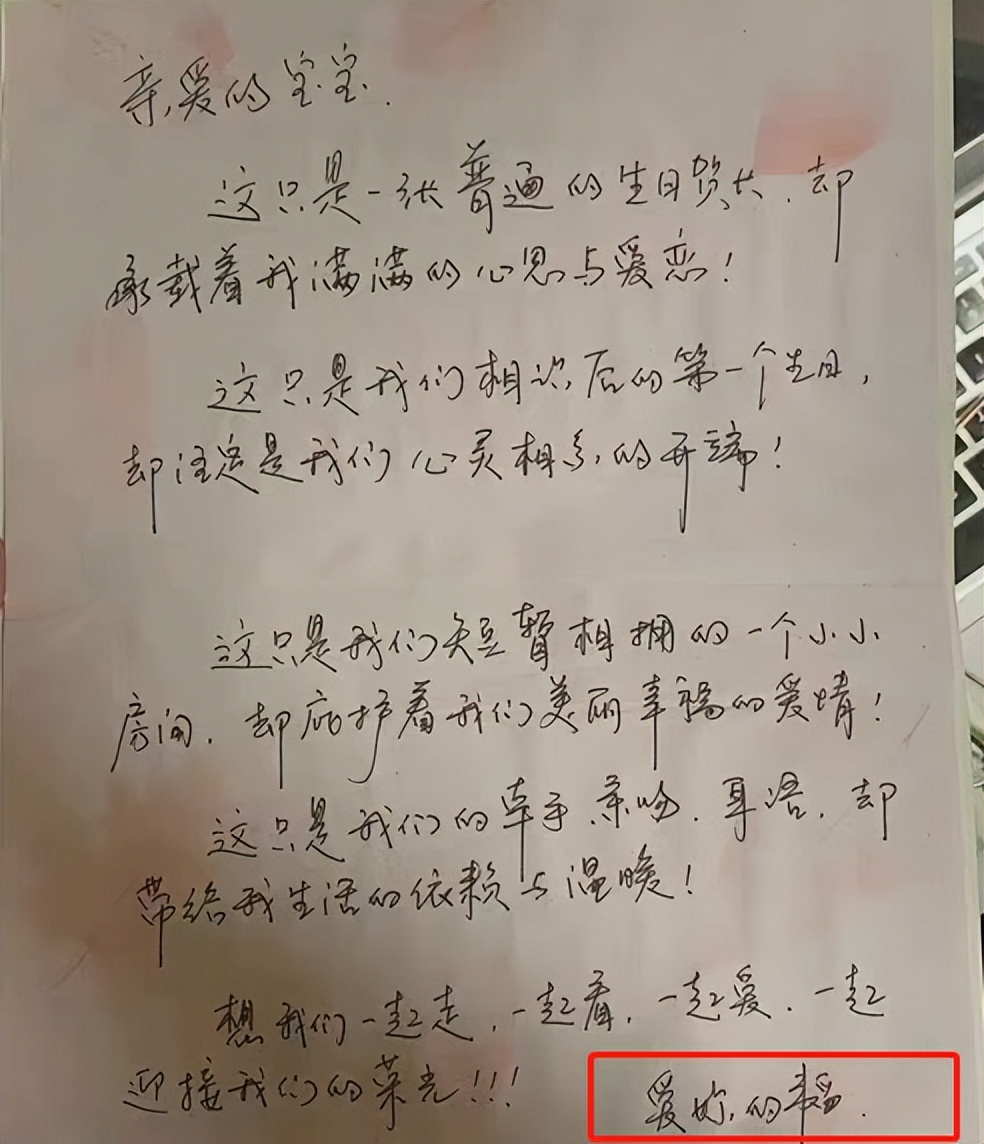 亲爱的宝宝.
这只是一张普通的生日贺卡.却
承载着我满满的心思与爱恋!
这只是我们相识后的第一个生日,
却注定是我们心灵相系的开端!
这只是我们短暂相拥的一个小小
房间.却庇护着我们美丽幸福的爱情!
这只是我们的牵手.亲吻.耳语.却
带给我生活的依赖与温暖!
想我们一起走.一起看.一起爱.一起
迎接我们的荣光!!!
爱你的